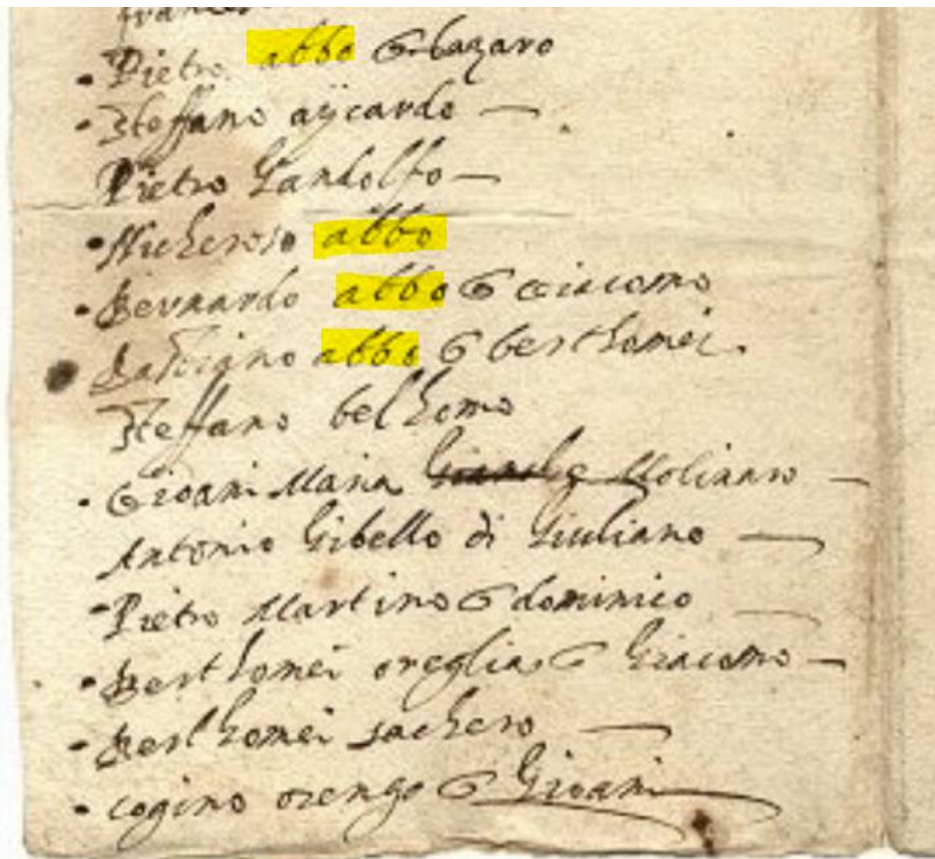 Pietro abbo G bazaro
Steffano aÿcardo
Pietro Gandolfo
abbo
Bernardo abbo G Giacomo
abbo G berthomei
Steffano belhomo
Gioani Maria Molinaro
Antonio Gibello di Giuliano
Pietro Martino G dominico
Berthomei oreglia G Giacomo
Berthomei sachero
cogino orengo G Gioani